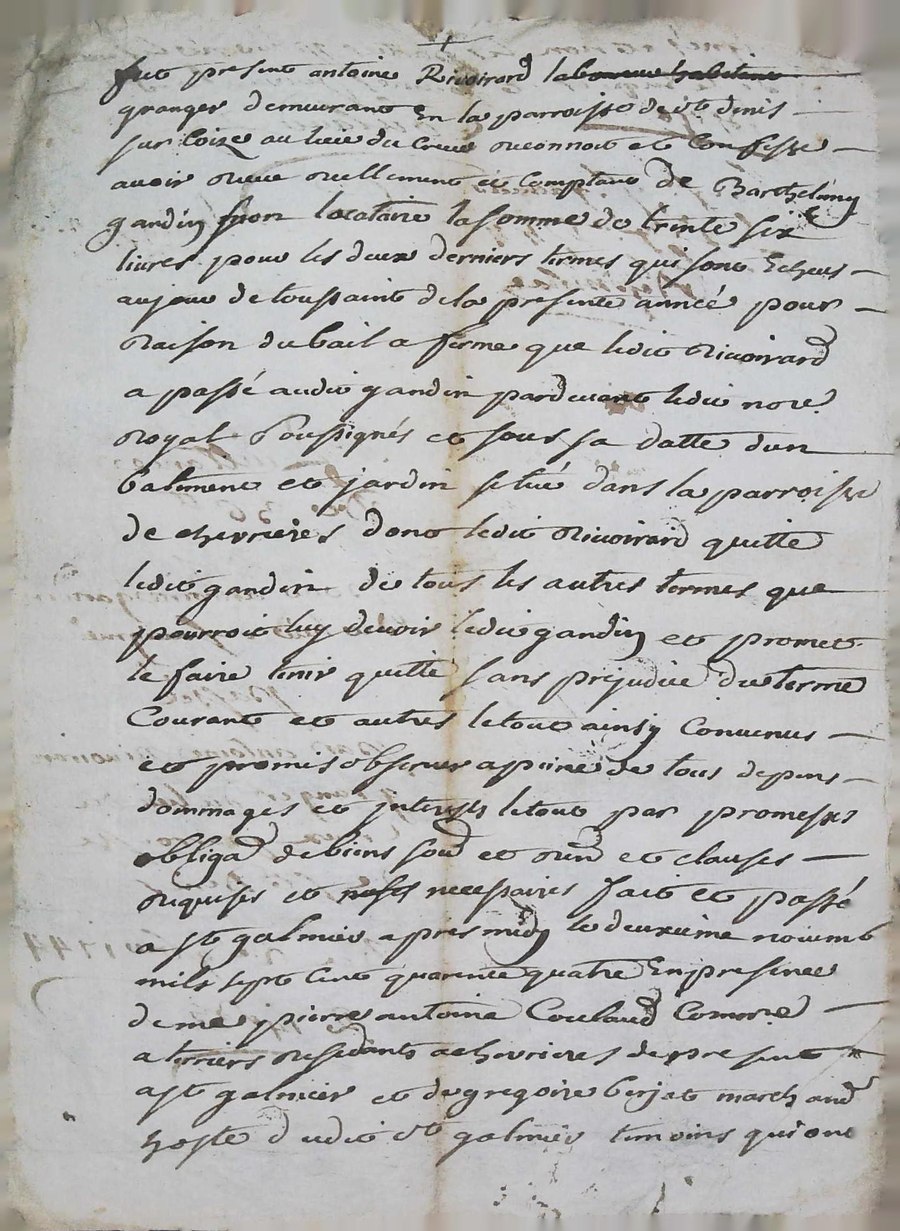 fut present antoine Rivoirard laboureur habitant
granger demeurant En la parroisse de st denis
sur Coize au lieu du Creux reconnoit et Confesse
avoir receu reellement et Comptant de Barthelemy
gandin son locataire la somme de trente six
livres pour les deux derniers termes qui sont Echeus
au jour de toussaint de la presente année pour
Raison du bail a ferme que ledit Rivoirard
a passé audit gandin pardevant ledit nore
Royal soussignés et sous sa datte d'un
batiment et jardin situé dans la parroisse
de chevrieres dont ledit Rivoirard quitte
ledit gandin de tous les autres termes que
pourroit luy devoir ledit gandin et promet
le faire tenir quitte sans prejudice du terme
Courant et autres le tout ainsy Convenus
et promis observer a peine de tous depens
dommages et interests le tout par promesses
obligaon de biens soud et rend et clauses
requises et necessaires fait et passé
a st galmier apres midy le deuxieme novemb
mil sept cent quarente quatre En presence
de me pierre antoine Coulaud Commre
a terriers residant a chevrieres de present
a st galmier et de gregoire berjat marchand
hoste dudit st galmier temoins qui ont